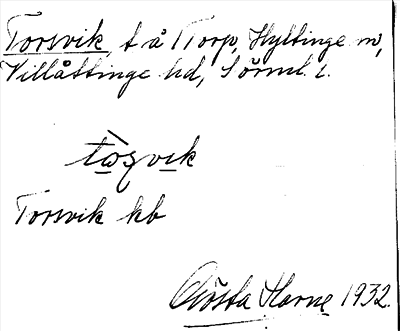 Torsvik, t å Torp, Hyltinge sn,
Villåttinge hd, Sörml. l.
tòsvik
Torsvik kb
Gösta Harne 1932.